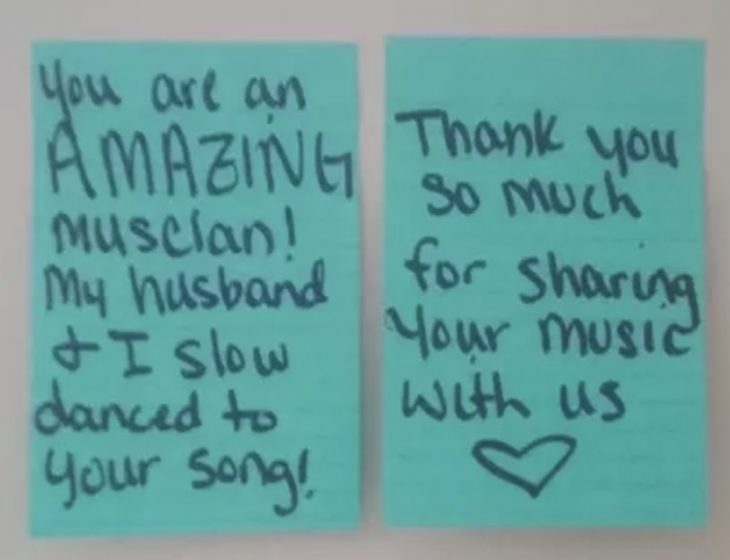 You are an
AMAZING
muscian!
My husband
& I slow
danced to
your song!
Thank you
so much
for sharing
your music
with us